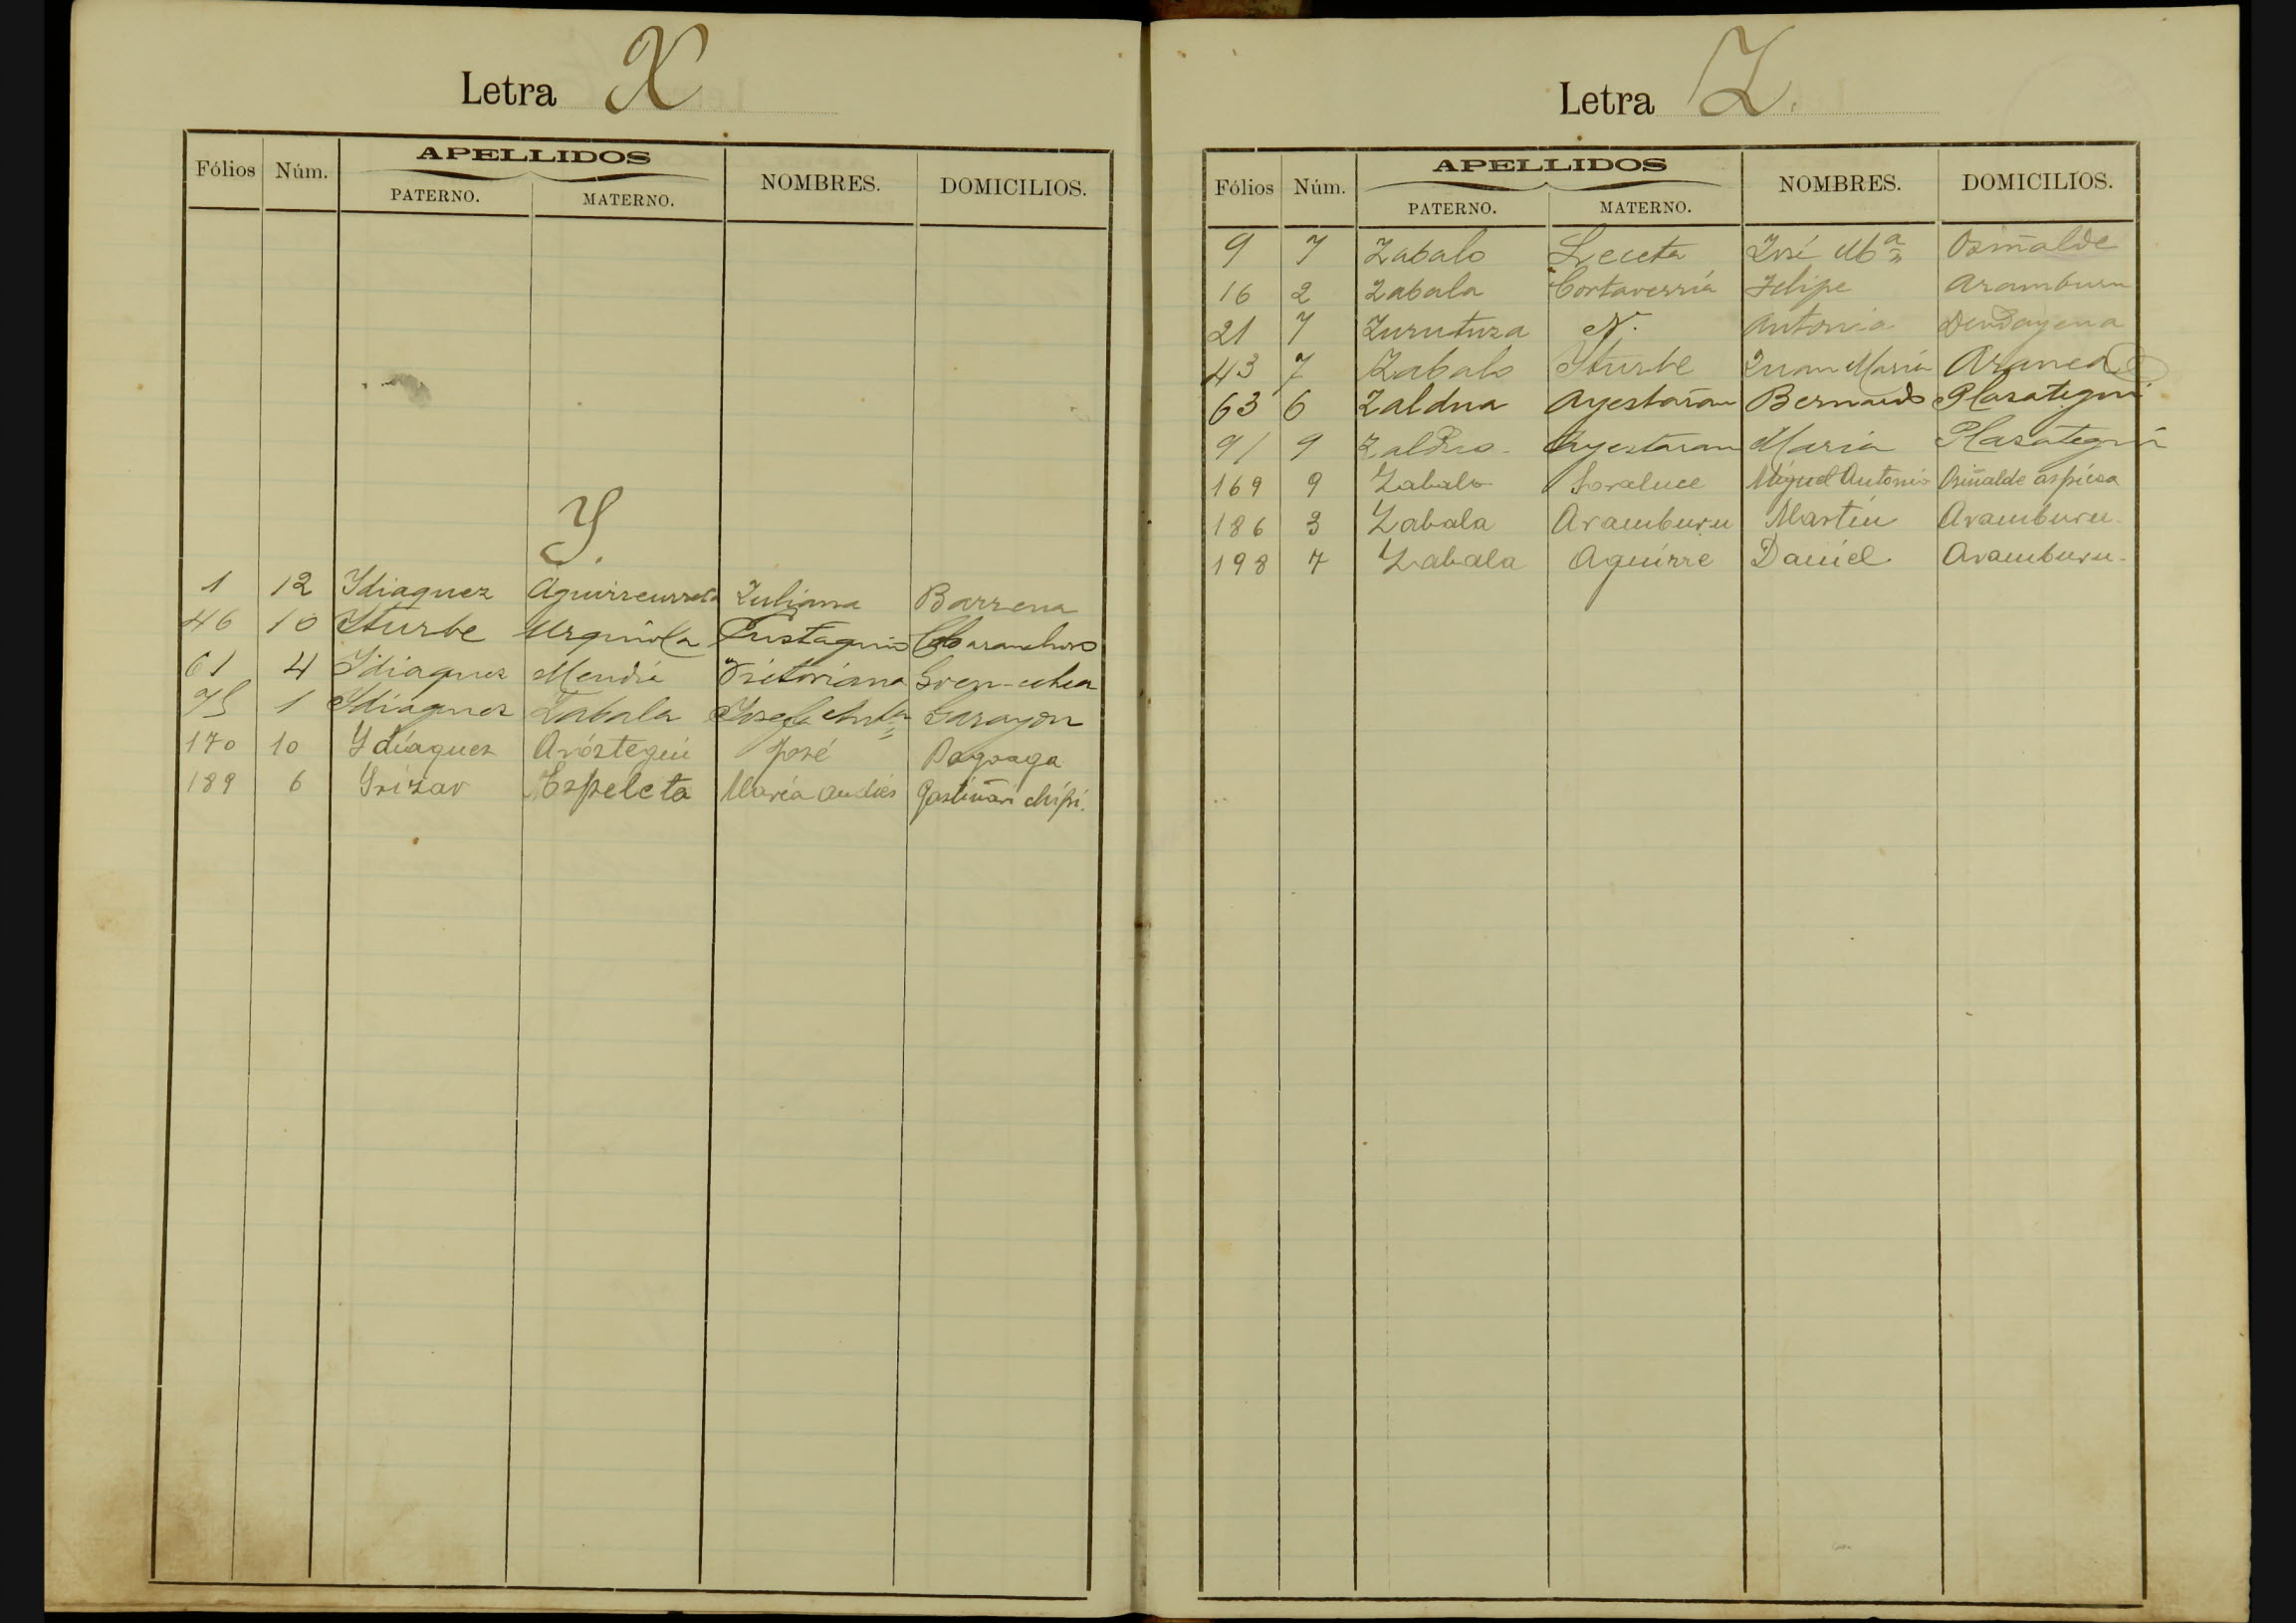 Letra X
Fólios Núm. APELLIDOS NOMBRES. DOMICILIOS.
PATERNO. MATERNO.
Y.
1 12 Ydiaquez Aguirreurreta Juliana Barrena
46 10 Yturbe Urquiola Eustaquio
61 4 Ydiaquez Mendia Victoriana Goen-echea
75 1 Ydiaquez Zabala Josefa Anta Garayon
170 10 Ydiaquez Aróstegui José Pagoaga
189 6 Yrizar Espeleta María Andrés Gastiñari chipi.
Letra Z.
Fólios Núm. APELLIDOS NOMBRES. DOMICILIOS.
PATERNO. MATERNO.
9 7 Zabalo Leceta José Ma Osiñalde
16 2 Zabala Gortaverría Felipe Aramburu
21 7 Zurutuza N. Antonia
43 7 Zabalo Yturbe Juan María
63 6 Zaldua Ayestarán Bernardo Plazategui
91 9 Zaldua Ayestaran Maria Plazategui
169 9 Zabalo Soraluce Miguel Antonio Osiñalde aspicoa
186 3 Zabala Aramburu Martín Aramburu.
198 7 Zabala Aguirre Daniel Aramburu.